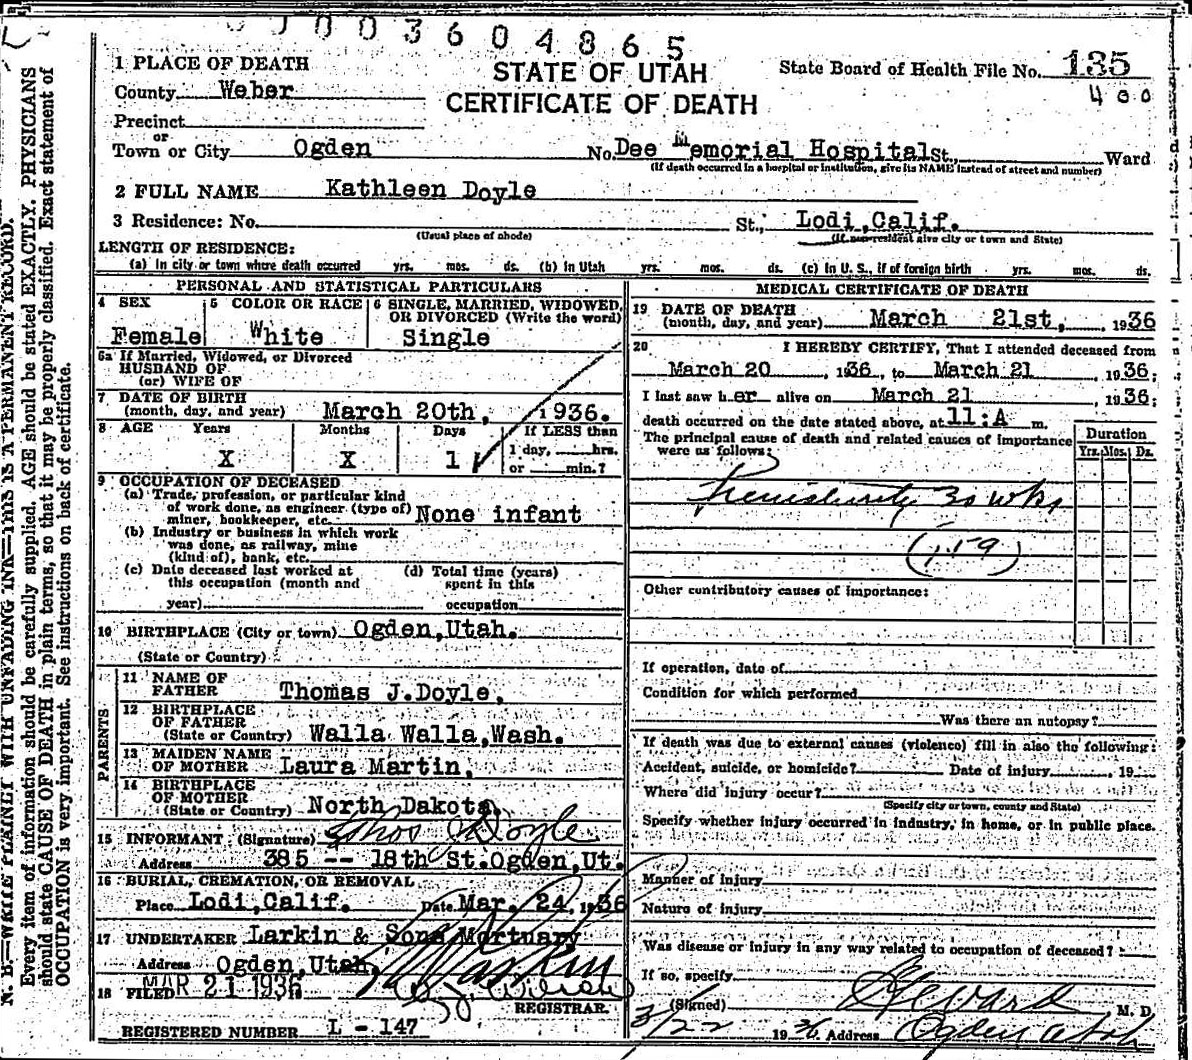 003604865
STATE OF UTAH
CERTIFICATE OF DEATH
State Board of Health File No. 135
400
1 PLACE OF DEATH
County Weber
Precinct
or
Town or City Ogden No. Dee Memorial Hospital St., Ward
(If death occurred in a hospital or institution, give its NAME instead of street and number)
2 FULL NAME Kathleen Doyle
3 Residence: No. St., Lodi,Calif.
(Usual place of abode) (If non-resident give city or town and State)
LENGTH OF RESIDENCE:
(a) in city or town where death occurred yrs. mos. ds. (b) in Utah yrs. mos. ds. (c) in U. S., if of foreign birth yrs. mos. ds.
PERSONAL AND STATISTICAL PARTICULARS
4 SEX 5 COLOR OR RACE 6 SINGLE, MARRIED, WIDOWED,
OR DIVORCED (Write the word)
Female White Single
6a If Married, Widowed, or Divorced
HUSBAND OF
(or) WIFE OF
7 DATE OF BIRTH
(month, day, and year) March 20th, 1936.
8 AGE Years Months Days If LESS than
1 day, hrs.
X X 1 or min.?
9 OCCUPATION OF DECEASED
(a) Trade, profession, or particular kind
of work done, as engineer (type of)
miner, bookkeeper, etc. None infant
(b) Industry or business in which work
was done, as railway, mine
(kind of), bank, etc.
(c) Date deceased last worked at (d) Total time (years)
this occupation (month and spent in this
year) occupation
10 BIRTHPLACE (City or town) Ogden,Utah.
(State or Country)
PARENTS
11 NAME OF
FATHER Thomas J.Doyle,
12 BIRTHPLACE
OF FATHER
(State or Country) Walla Walla,Wash.
13 MAIDEN NAME
OF MOTHER Laura Martin,
14 BIRTHPLACE
OF MOTHER
(State or Country) North Dakota,
15 INFORMANT (Signature) Thos J Doyle
Address 385 -- 18th St.Ogden,Ut.
16 BURIAL, CREMATION, OR REMOVAL
Place Lodi,Calif. Date Mar. 24, 1936
17 UNDERTAKER Larkin & Sons Mortuary
Address Ogden,Utah,
18 FILED MAR 21 1936
REGISTRAR.
REGISTERED NUMBER L - 147
MEDICAL CERTIFICATE OF DEATH
19 DATE OF DEATH
(month, day, and year) March 21st, 1936
20 I HEREBY CERTIFY, That I attended deceased from
March 20, 1936, to March 21, 1936;
I last saw her alive on March 21, 1936;
death occurred on the date stated above, at 11:A m.
The principal cause of death and related causes of importance
were as follows:
Duration
Yrs. Mos. Ds.
Prematurity 30 wks
(159)
Other contributory causes of importance:
If operation, date of
Condition for which performed
Was there an autopsy?
If death was due to external causes (violence) fill in also the following:
Accident, suicide, or homicide? Date of injury , 19
Where did injury occur?
(Specify city or town, county and State)
Specify whether injury occurred in industry, in home, or in public place.
Manner of injury
Nature of injury
Was disease or injury in any way related to occupation of deceased?
If so, specify
(Signed) M. D.
3/22 1936 Address Ogden Utah
N. B.—WRITE PLAINLY WITH UNFADING INK—THIS IS A PERMANENT RECORD.
Every item of information should be carefully supplied. AGE should be stated EXACTLY. PHYSICIANS
should state CAUSE OF DEATH in plain terms, so that it may be properly classified. Exact statement of
OCCUPATION is very important. See instructions on back of certificate.